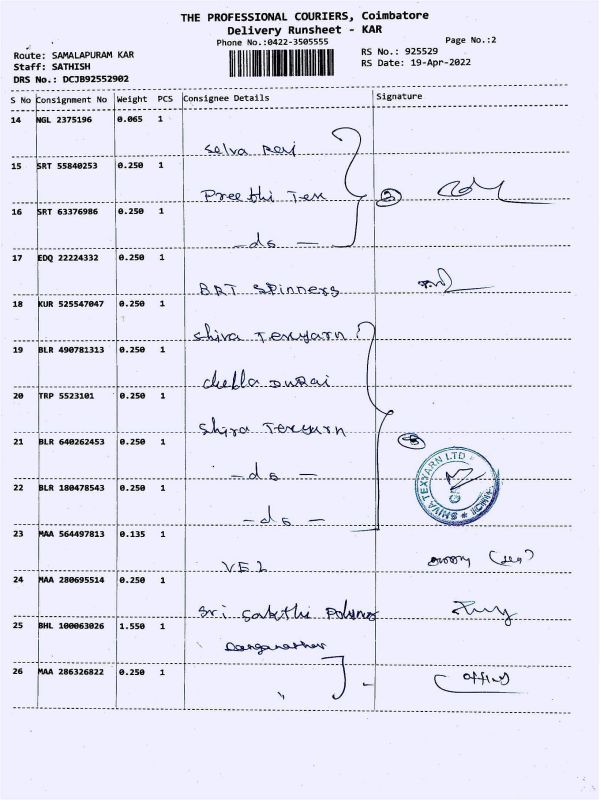 THE PROFESSIONAL COURIERS, Coimbatore
Delivery Runsheet - KAR
Phone No.:0422-3505555
Page No.:2
Route: SAMALAPURAM KAR
Staff: SATHISH
DRS No.: DCJB92552902
RS No.: 925529
RS Date: 19-Apr-2022
S No Consignment No Weight PCS Consignee Details Signature
14 NGL 2375196 0.065 1
Selva Raj
15 SRT 55840253 0.250 1
Preethi Tex
16 SRT 63376986 0.250 1
- do -
17 EDQ 22224332 0.250 1
BRT Spinners
18 KUR 525547047 0.250 1
Shiva Texyarn
19 BLR 490781313 0.250 1
Chella DURAI
20 TRP 5523101 0.250 1
Shiva Texyarn
21 BLR 640262453 0.250 1
- do -
22 BLR 180478543 0.250 1
- do -
SHIVA TEXYARN LTD
23 MAA 564497813 0.135 1
VEL
24 MAA 280695514 0.250 1
Sri Sakthi
25 BHL 100063026 1.550 1
26 MAA 286326822 0.250 1
"